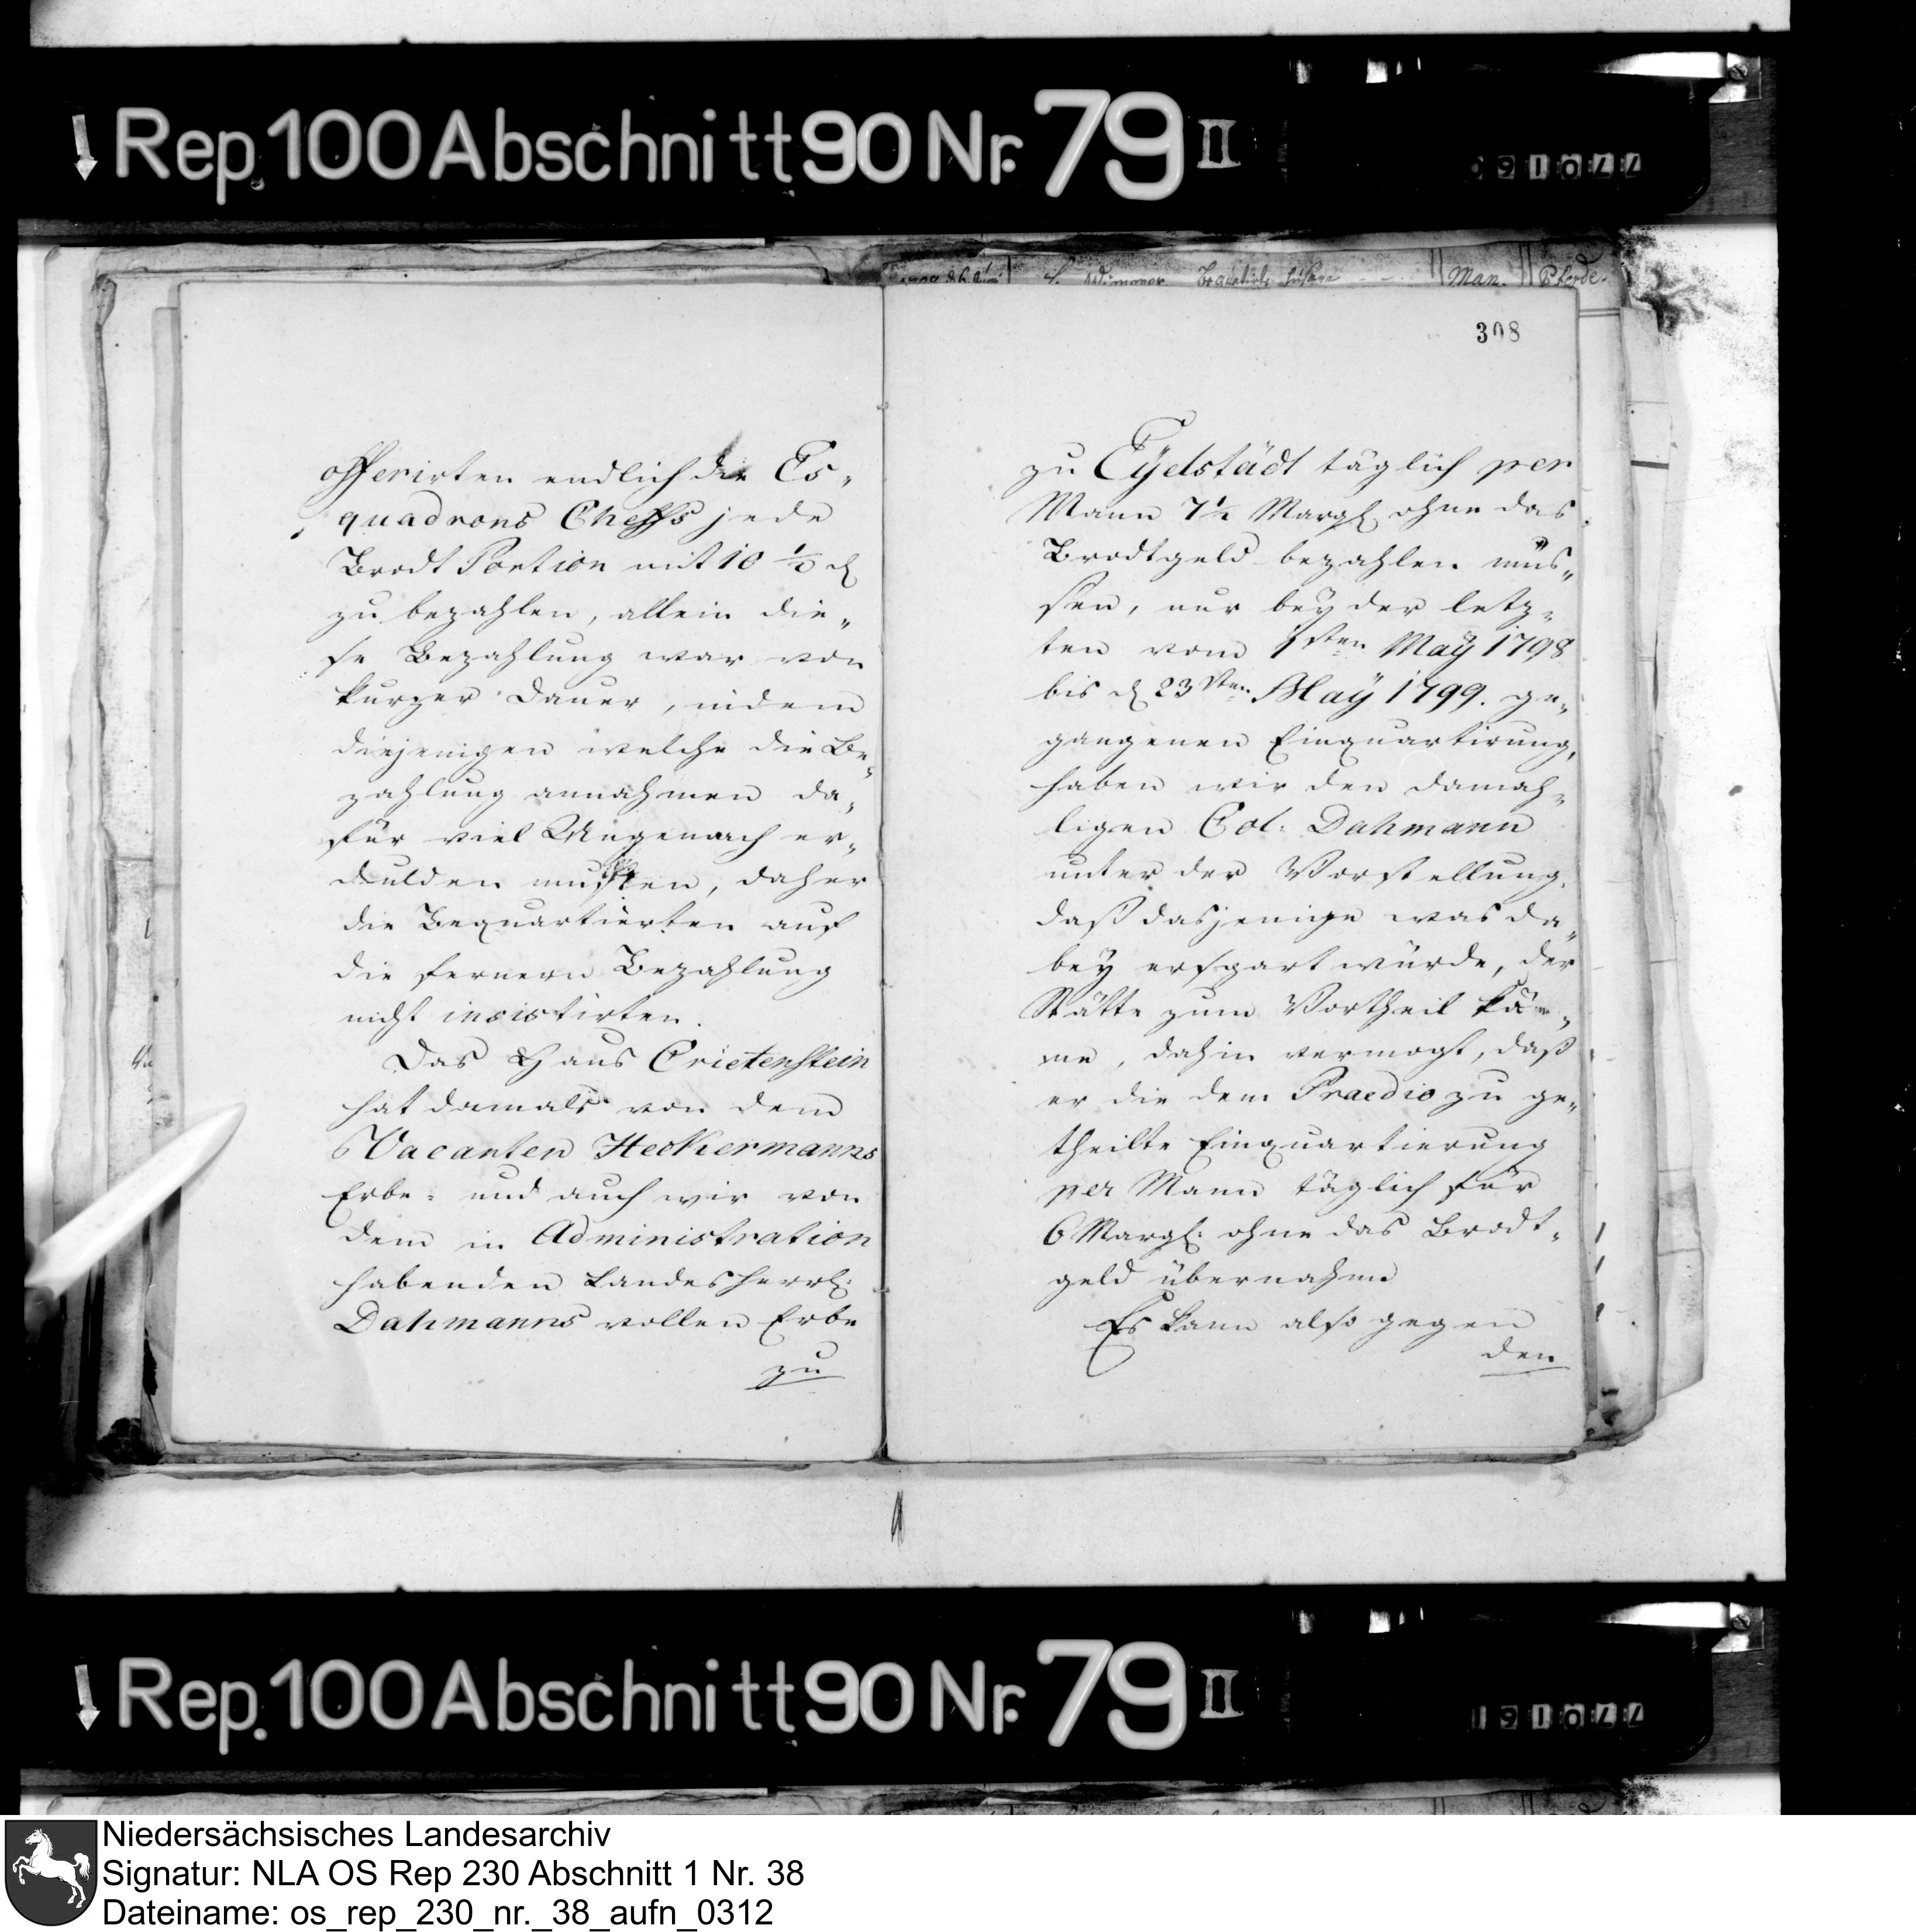 Rep. 100 Abschnitt 90 Nr. 79 II
Man. Pferde.
offerirten endlich die Es-
quadrons Cheffs jede
Brodt Portion mit 10 ½ d
zu bezahlen, allein die-
se Bezahlung war von
kurzer Dauer, indem
diejenigen welche die Be-
zahlung annahmen da-
für viel Ungemach er-
dulden mußten, daher
die Bequartierten auf
die fernern Bezahlung
nicht insistirten.
Das Haus Crietenstein
hat damals von dem
Vacanten Heckermanns
Erbe- und auch wir von
dem in Administration
habenden Landesherrl:
Dahmanns vollen Erbe
zu
308
zu Eyelstädt täglich per
Mann 7½ Margl ohne das
Brodtgeld bezahlen müs-
sen, nur bey der letz-
ten vom 1sten Maÿ 1798
bis d 23sten Maÿ 1799. ge-
gangenen Einquartirung,
haben wir den damah-
ligen Col: Dahmann
unter der Vorstellung,
daß dasjenige was da-
bey erspart würde, der
Stätte zum Vortheil kä-
me, dahin vermogt, daß
er die dem Praedio zu ge-
theilte Einquartierung
per Mann täglich für
6 Margl: ohne das Brodt-
geld übernahm
Es kann also gegen
den
Rep. 100 Abschnitt 90 Nr. 79 II
Niedersächsisches Landesarchiv
Signatur: NLA OS Rep 230 Abschnitt 1 Nr. 38
Dateiname: os_rep_230_nr._38_aufn_0312